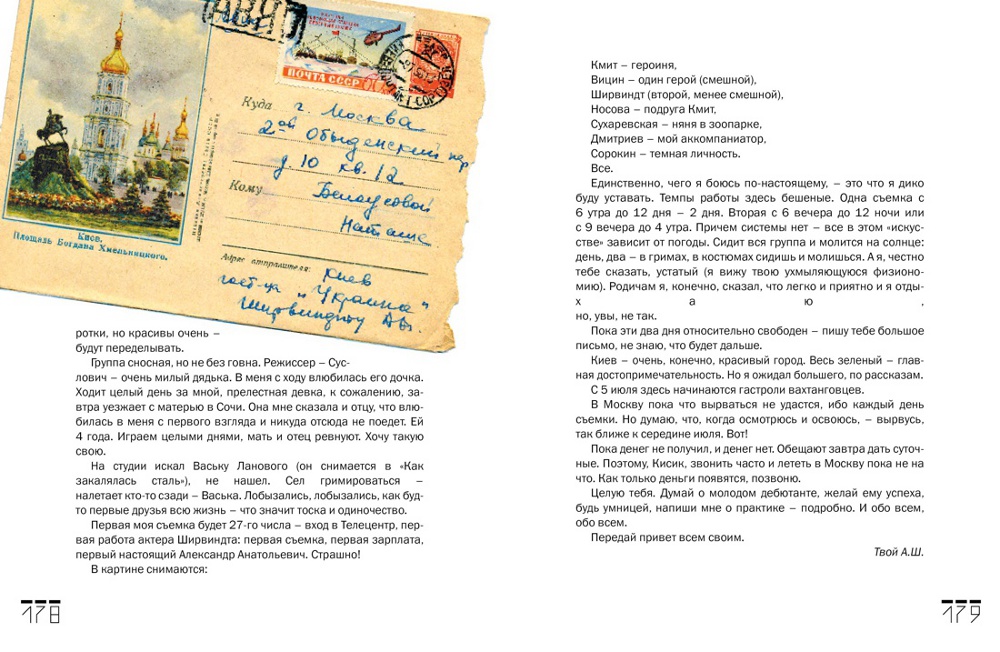 АВИА
ПОЧТА СССР
Куда г. Москва
2ой Обыденский пер.
д. 10 кв. 12
Кому Белоусовой
Наташе
Адрес отправителя: Киев
гост-ца "Украина"
Ширвиндту А.
Киев.
Площадь Богдана Хмельницкого.
ротки, но красивы очень –
будут переделывать.
Группа сносная, но не без говна. Режиссер – Сус-
лович – очень милый дядька. В меня с ходу влюбилась его дочка.
Ходит целый день за мной, прелестная девка, к сожалению, за-
втра уезжает с матерью в Сочи. Она мне сказала и отцу, что влю-
билась в меня с первого взгляда и никуда отсюда не поедет. Ей
4 года. Играем целыми днями, мать и отец ревнуют. Хочу такую
свою.
На студии искал Ваську Ланового (он снимается в «Как
закалялась сталь»), не нашел. Сел гримироваться –
налетает кто-то сзади – Васька. Лобызались, лобызались, как буд-
то первые друзья всю жизнь – что значит тоска и одиночество.
Первая моя съемка будет 27-го числа – вход в Телецентр, пер-
вая работа актера Ширвиндта: первая съемка, первая зарплата,
первый настоящий Александр Анатольевич. Страшно!
В картине снимаются:
178
Кмит – героиня,
Вицин – один герой (смешной),
Ширвиндт (второй, менее смешной),
Носова – подруга Кмит,
Сухаревская – няня в зоопарке,
Дмитриев – мой аккомпаниатор,
Сорокин – темная личность.
Все.
Единственно, чего я боюсь по-настоящему, – это что я дико
буду уставать. Темпы работы здесь бешеные. Одна съемка с
6 утра до 12 дня – 2 дня. Вторая с 6 вечера до 12 ночи или
с 9 вечера до 4 утра. Причем системы нет – все в этом «искус-
стве» зависит от погоды. Сидит вся группа и молится на солнце:
день, два – в гримах, в костюмах сидишь и молишься. А я, честно
тебе сказать, устатый (я вижу твою ухмыляющуюся физионо-
мию). Родичам я, конечно, сказал, что легко и приятно и я отды-
х а ю ,
но, увы, не так.
Пока эти два дня относительно свободен – пишу тебе большое
письмо, не знаю, что будет дальше.
Киев – очень, конечно, красивый город. Весь зеленый – глав-
ная достопримечательность. Но я ожидал большего, по рассказам.
С 5 июля здесь начинаются гастроли вахтанговцев.
В Москву пока что вырваться не удастся, ибо каждый день
съемки. Но думаю, что, когда осмотрюсь и освоюсь, – вырвусь,
так ближе к середине июля. Вот!
Пока денег не получил, и денег нет. Обещают завтра дать суточ-
ные. Поэтому, Кисик, звонить часто и лететь в Москву пока не на
что. Как только деньги появятся, позвоню.
Целую тебя. Думай о молодом дебютанте, желай ему успеха,
будь умницей, напиши мне о практике – подробно. И обо всем,
обо всем.
Передай привет всем своим.
Твой А.Ш.
179